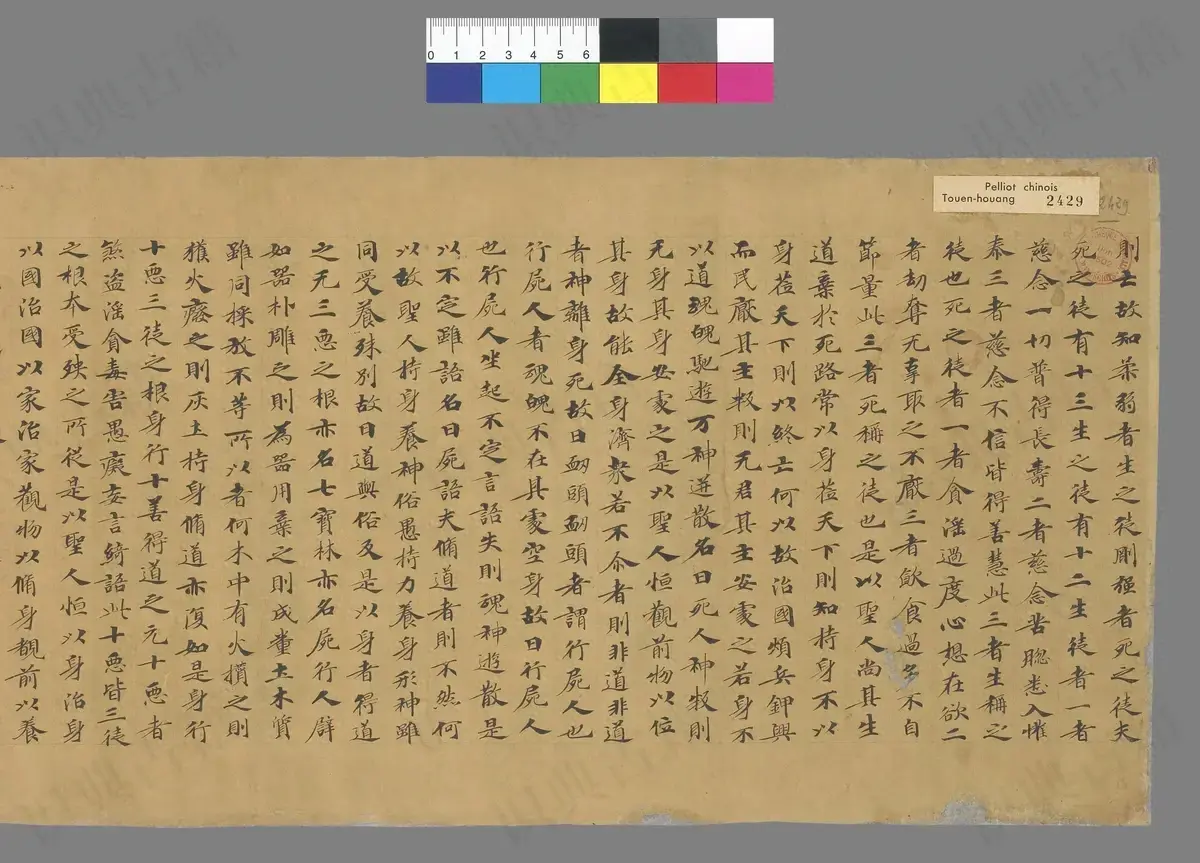 0 1 2 3 4 5 6
Pelliot chinois
Touen-houang 2429
2429
則亡故知柔弱者生之徒剛強者死之徒夫
死之徒有十三生之徒有十二生徒者一者
慈念一切普得長壽二者慈念苦惱悉入惟
泰三者慈念不信皆得善慧此三者生稱之
徒也死之徒者一者貪淫過度心想在欲二
者劫奪无辜取之不厭三者飲食過多不自
節量此三者死稱之徒也是以聖人尚其生
道棄於死路常以身莅天下則知持身不以
身莅天下則以終亡何以故治國煩兵鉀興
而民厭其主煞則无君其主安處之若身不
以道魂魄馳遊万神迸散名曰死人神煞則
无身其身安處之是以聖人恒觀前物以位
其身故能全身濟衆若不尒者則非道非道
者神離身死故曰𦣻頭𦣻頭者謂行屍人也
行屍人者魂魄不在其處空身故曰行屍人
也行屍人坐起不定言語失則魂神遊散是
以不定雖語名曰屍語夫脩道者則不然何
以故聖人持身養神俗愚持力養身形神雖
同受養殊別故曰道與俗反是以身者得道
之无三惡之根亦名七寶林亦名屍行人辟
如器朴雕之則為器用棄之則成糞土木質
雖同採放不等所以者何木中有火攢之則
獲火癈之則灰土持身脩道亦復如是身行
十惡三徒之根身行十善得道之元十惡者
煞盜淫貪毒害愚癡妄言綺語此十惡皆三徒
之根本受殃之所從是以聖人恒以身治身
以國治國以家治家觀物以脩身覩前以養